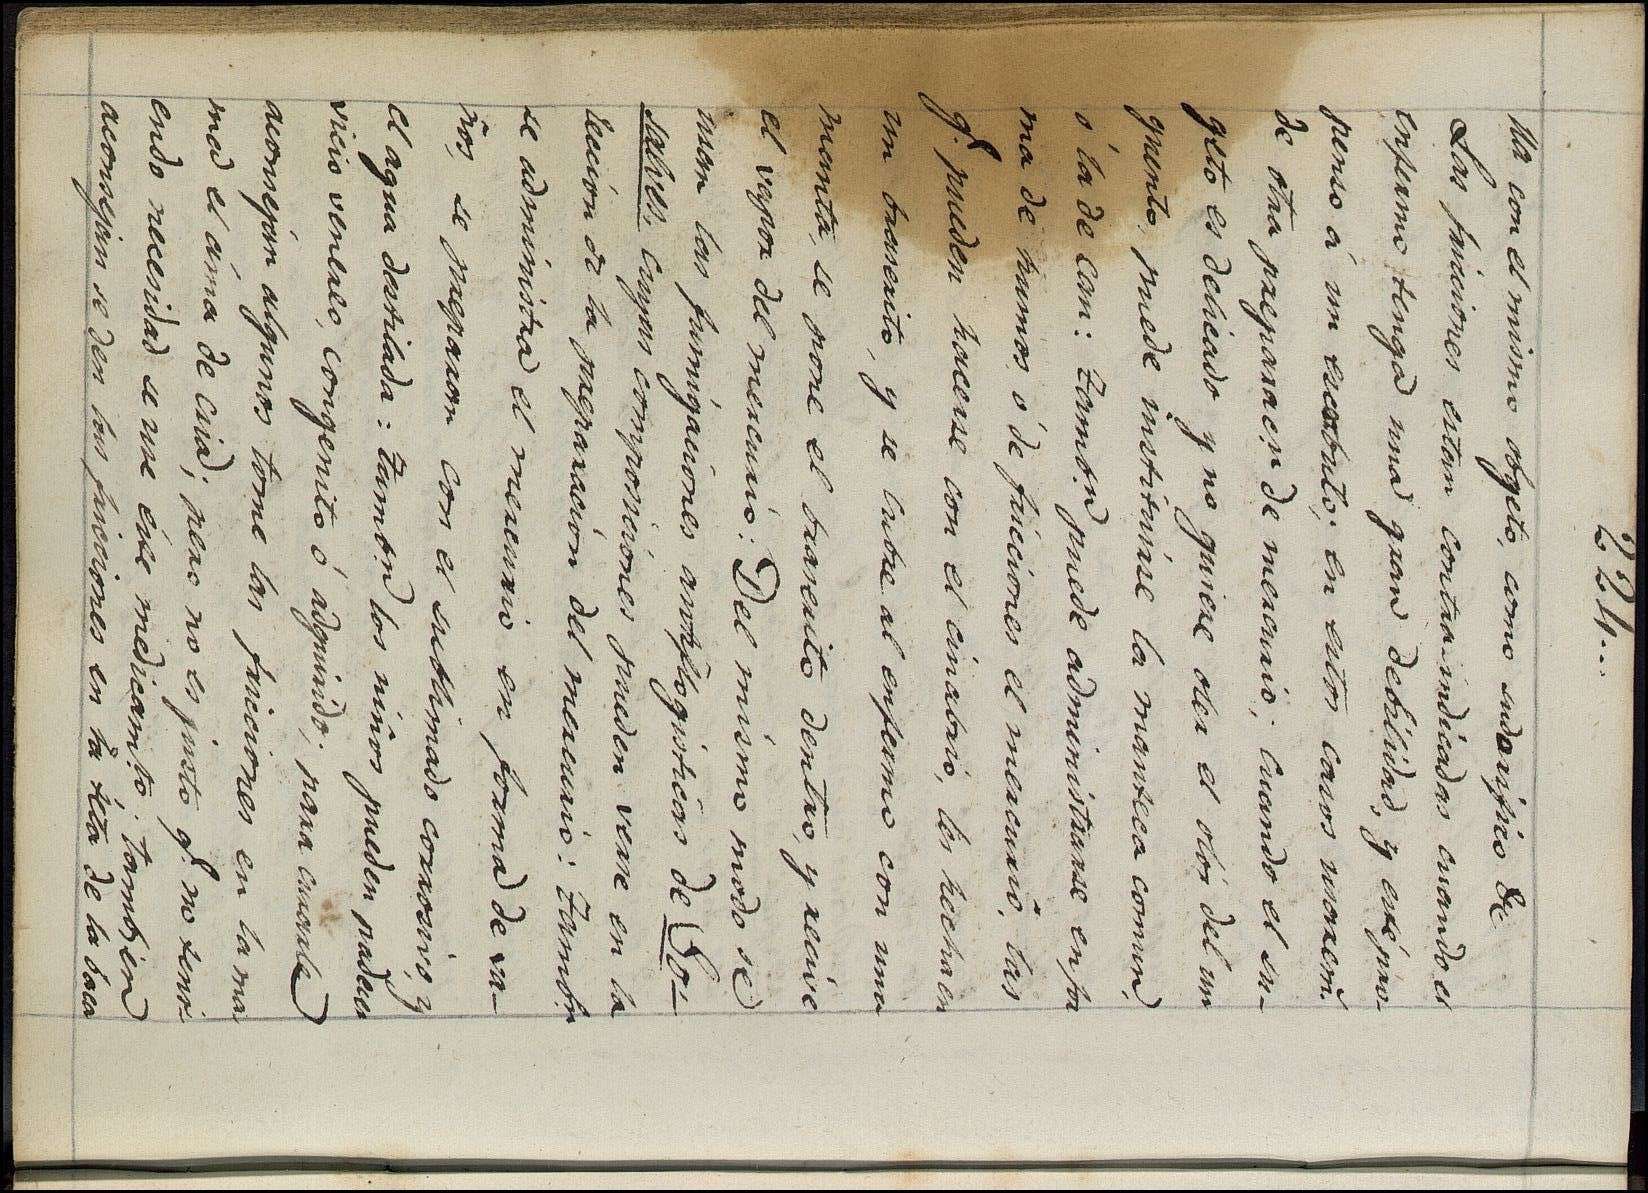 224..
lla con el mismo obgeto, como sudorifico &c
Las fricciones estan contraindicadas cuando el
enfermo tenga una gran debilidad, y esté pro-
penso á un escorbuto; en estos casos usaxem.s
de otra preparac.n de mercurio; cuando el su-
geto es delicado y no quiere oler el olor del un
guento, puede instituirse la manteca comun,
o la de Can: Tamb.n puede administrarse en for
ma de humos, ó de fricciones el mercurio, las
q.e pueden hacerse con el cinabrio, los hecha en
un braserito, y se cubre al enfermo con una
manta, se pone el braserito dentro, y recive
el vapor del mercurio: Del mismo modo se
usan las fumigaciones antiflogisticas de So-
salves, cuyas composiciones pueden verse en la
leccion de la preparacion del mercurio: Tamb.n
se administra el mercurio en forma de va-
ños, se preparan con el sublimado corrosivo, y
el agua destilada: Tamb.n los niños pueden padecer
vicio venereo, congenito ó adquirido; para curarle
aconsejan algunos tome las fricciones en la ma
ma el ama de cria; pero no es justo q.e no teni-
endo necesidad se use ese medicam.to; tambien
aconsejan se den las fricciones en la teta de la baca